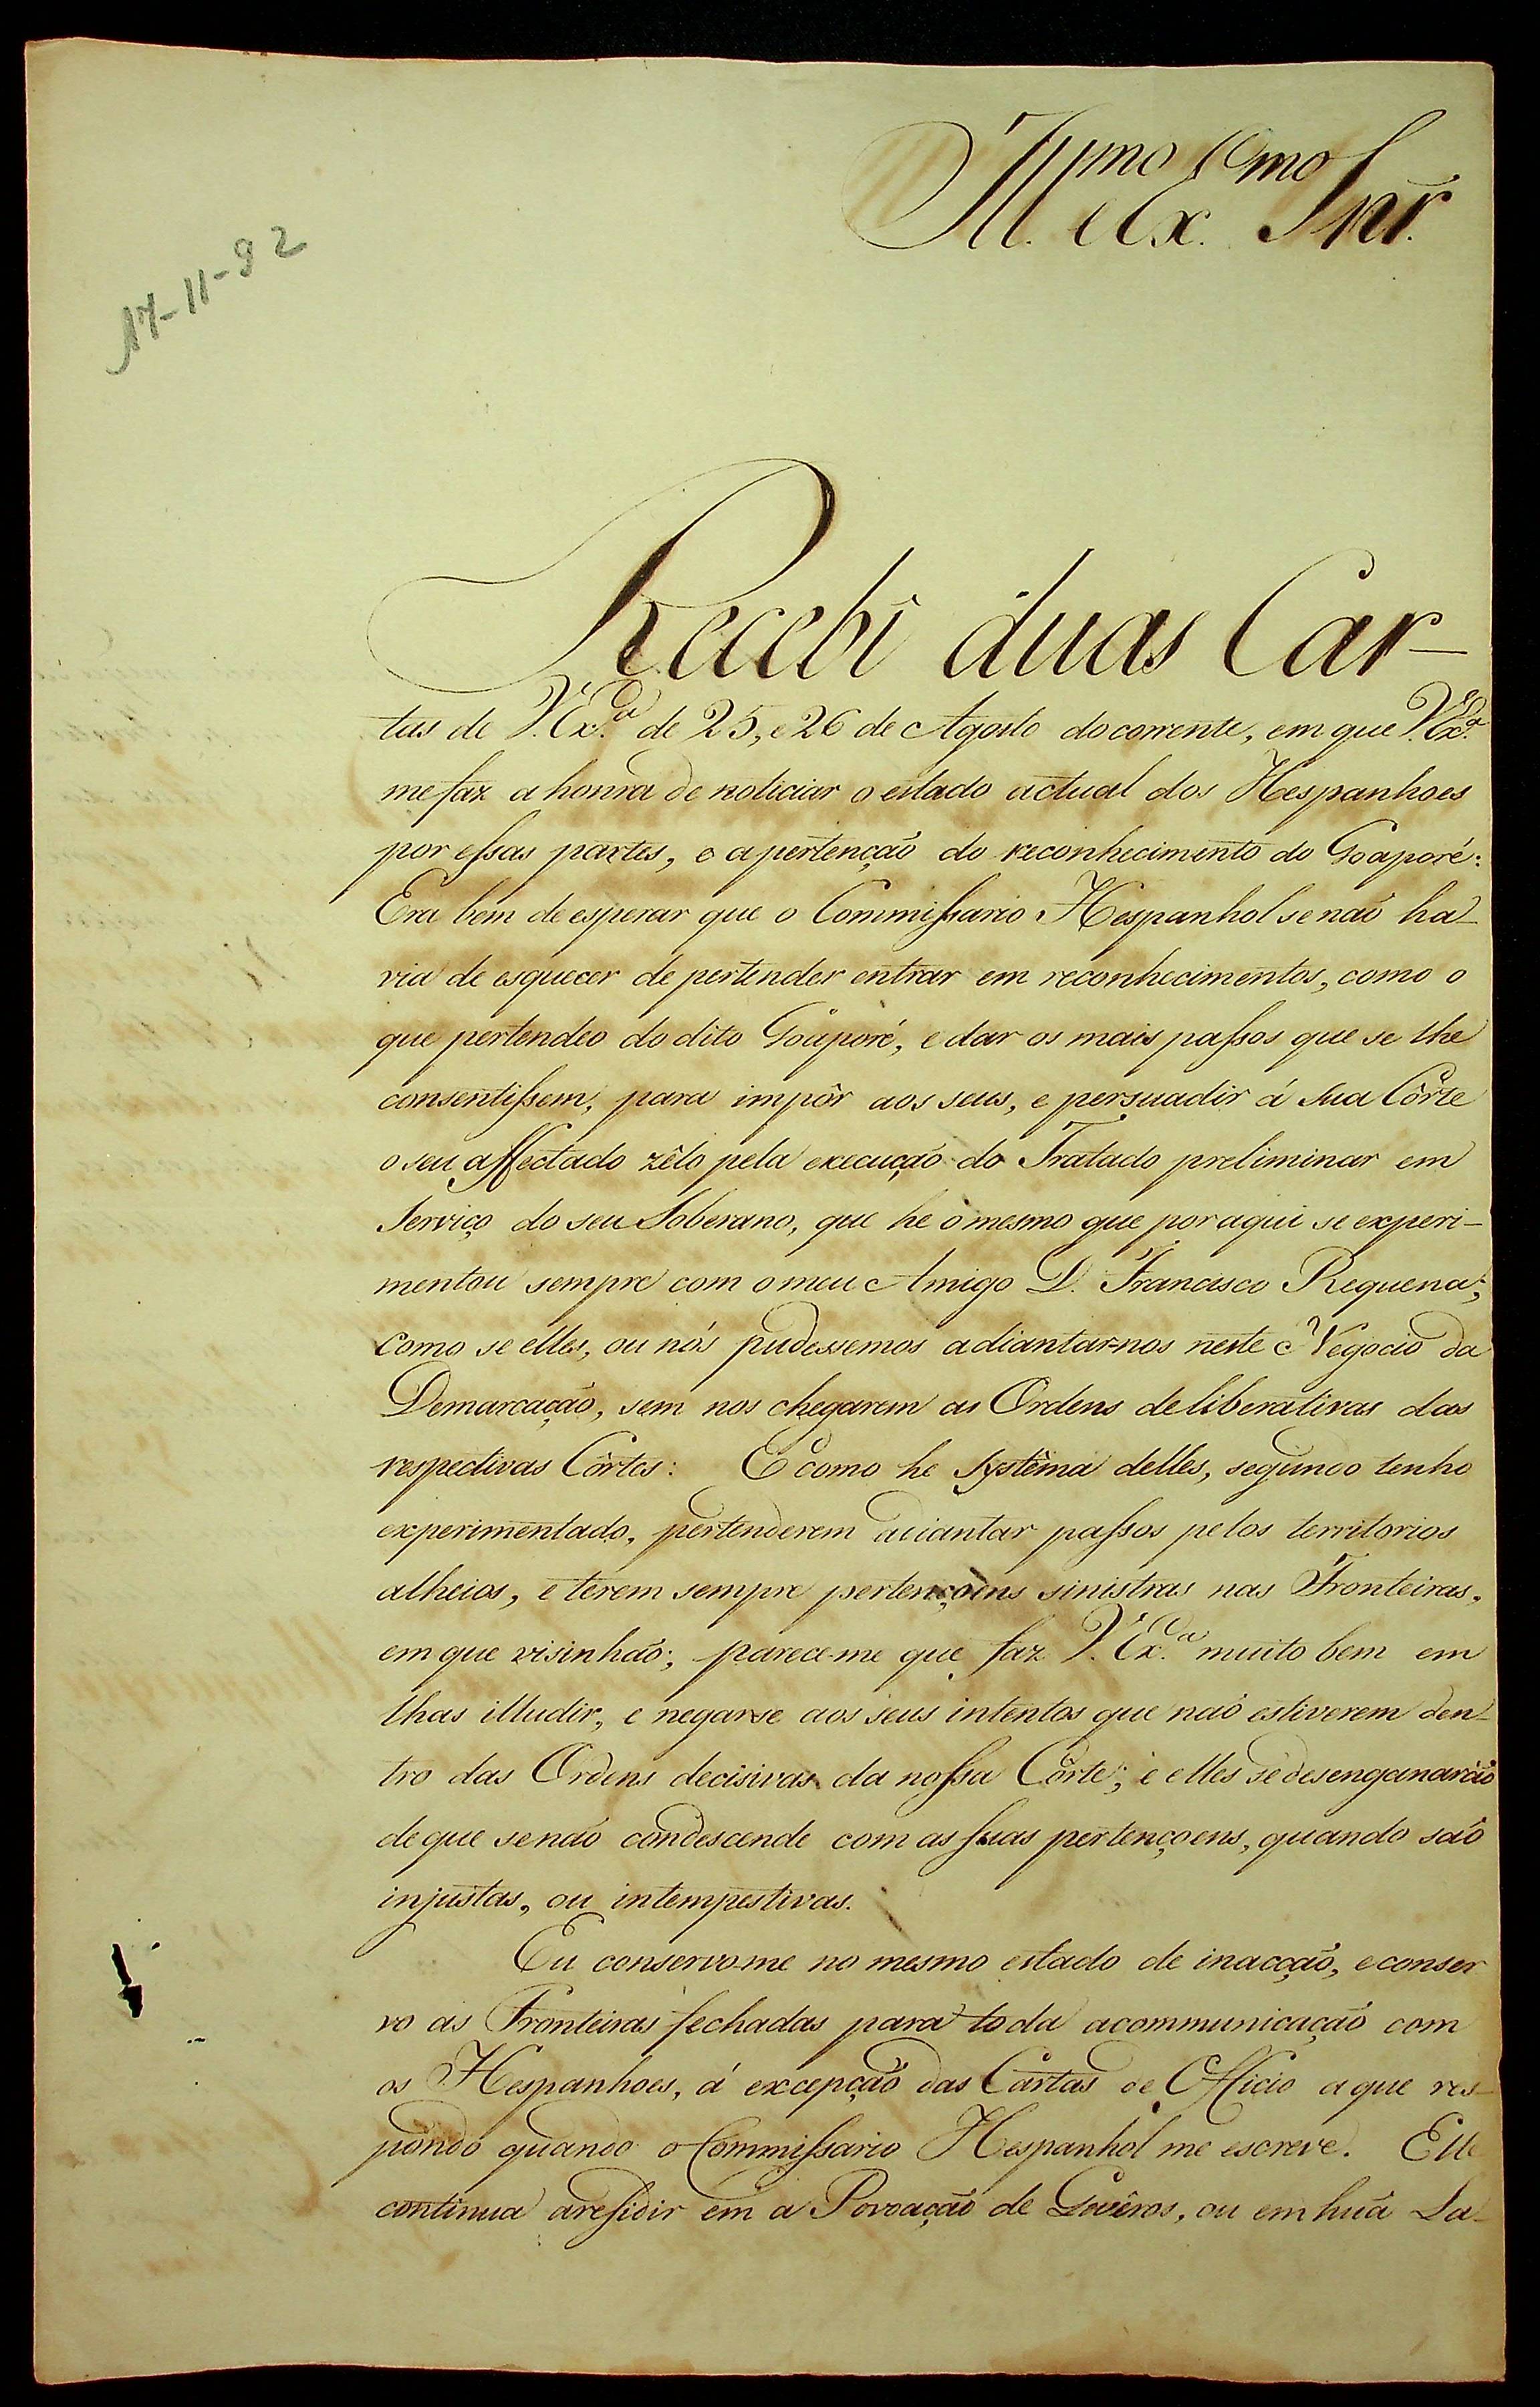 Ill.mo e Ex.mo Snr.
17-11-92
Recebi duas Car-
tas de V. Ex.a de 25, e 26 de Agosto do corrente, em que V. Ex.a
me faz a honra de noticiar o estado actual dos Hespanhoes
por essas partes, e a pertenção do reconhecimento do Goaporé:
Era bem de esperar que o Commissario Hespanhol se não ha-
via de esquecer de pertender entrar em reconhecimentos, como o
que pertendeo do dito Goaporé, e dar os mais passos que se lhe
consentissem, para impôr aos seus, e persuadir á sua Côrte
o seu affectado zêlo pela execução do Tratado preliminar em
Serviço do seu Soberano, que he o mesmo que por aqui se experi-
mentou sempre com o meu Amigo D. Francisco Requena;
como se elles, ou nós pudessemos adiantar-nos neste Negocio da
Demarcação, sem nos chegarem as Ordens deliberativas das
respectivas Côrtes: E como he systêma delles, segundo tenho
experimentado, pertenderem adiantar passos pelos territorios
alheios, e terem sempre pertençoens sinistras nas Fronteiras,
em que visinhão; parece-me que faz V. Ex.a muito bem em
lhas illudir, e negar-se aos seus intentos que não estiverem den-
tro das Ordens decisivas da nossa Côrte; e elles se desenganarão
de que se não condescende com as suas pertençoens, quando são
injustas, ou intempestivas.
Eu conservo-me no mesmo estado de inacção, e conser
vo as Fronteiras fechadas para toda a communicação com
os Hespanhoes, á excepção das Cartas de Officio a que res-
pondo quando o Commissario Hespanhol me escreve. Elle
continua a residir em a Povoação de Gaviros, ou em huã La-